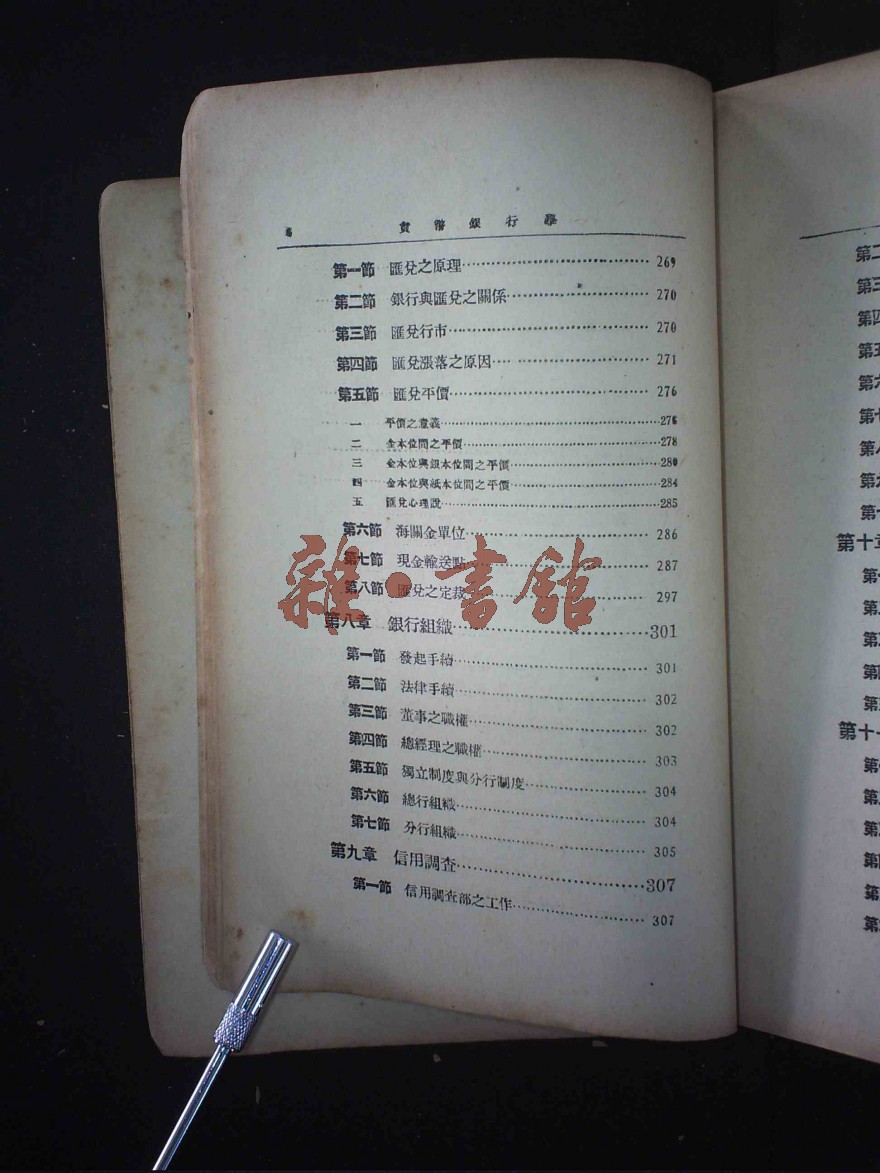 貨幣銀行學
第一節 匯兌之原理 269
第二節 銀行與匯兌之關係 270
第三節 匯兌行市 270
第四節 匯兌漲落之原因 271
第五節 匯兌平價 276
一 平價之意義 276
二 金本位間之平價 278
三 金本位與銀本位間之平價 280
四 金本位與紙本位間之平價 284
五 匯兌心理說 285
第六節 海關金單位 286
第七節 現金輸送點 287
第八節 匯兌之定裁 297
第八章 銀行組織 301
第一節 發起手續 301
第二節 法律手續 302
第三節 董事之職權 302
第四節 總經理之職權 303
第五節 獨立制度與分行制度 304
第六節 總行組織 304
第七節 分行組織 305
第九章 信用調查 307
第一節 信用調查部之工作 307
雜·書館
第二
第三
第四
第五
第六
第七
第八
第九
第十
第十章
第一
第二
第三
第四
第五
第十一
第一
第二
第三
第四
第五
第六